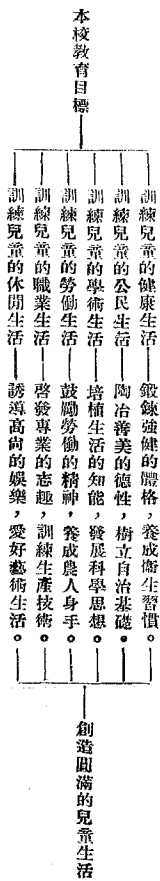 本校教育目標
訓練兒童的健康生活 鍛鍊強健的體格，養成衞生習慣。
訓練兒童的公民生活 陶冶善美的德性，樹立自治基礎。
訓練兒童的學術生活 培植生活的知能，發展科學思想。
訓練兒童的勞働生活 鼓勵勞働的精神，養成農人身手。
訓練兒童的職業生活 啓發專業的志趣，訓練生產技術。
訓練兒童的休閒生活 誘導高尚的娛樂，愛好藝術生活。
創造圓滿的兒童生活